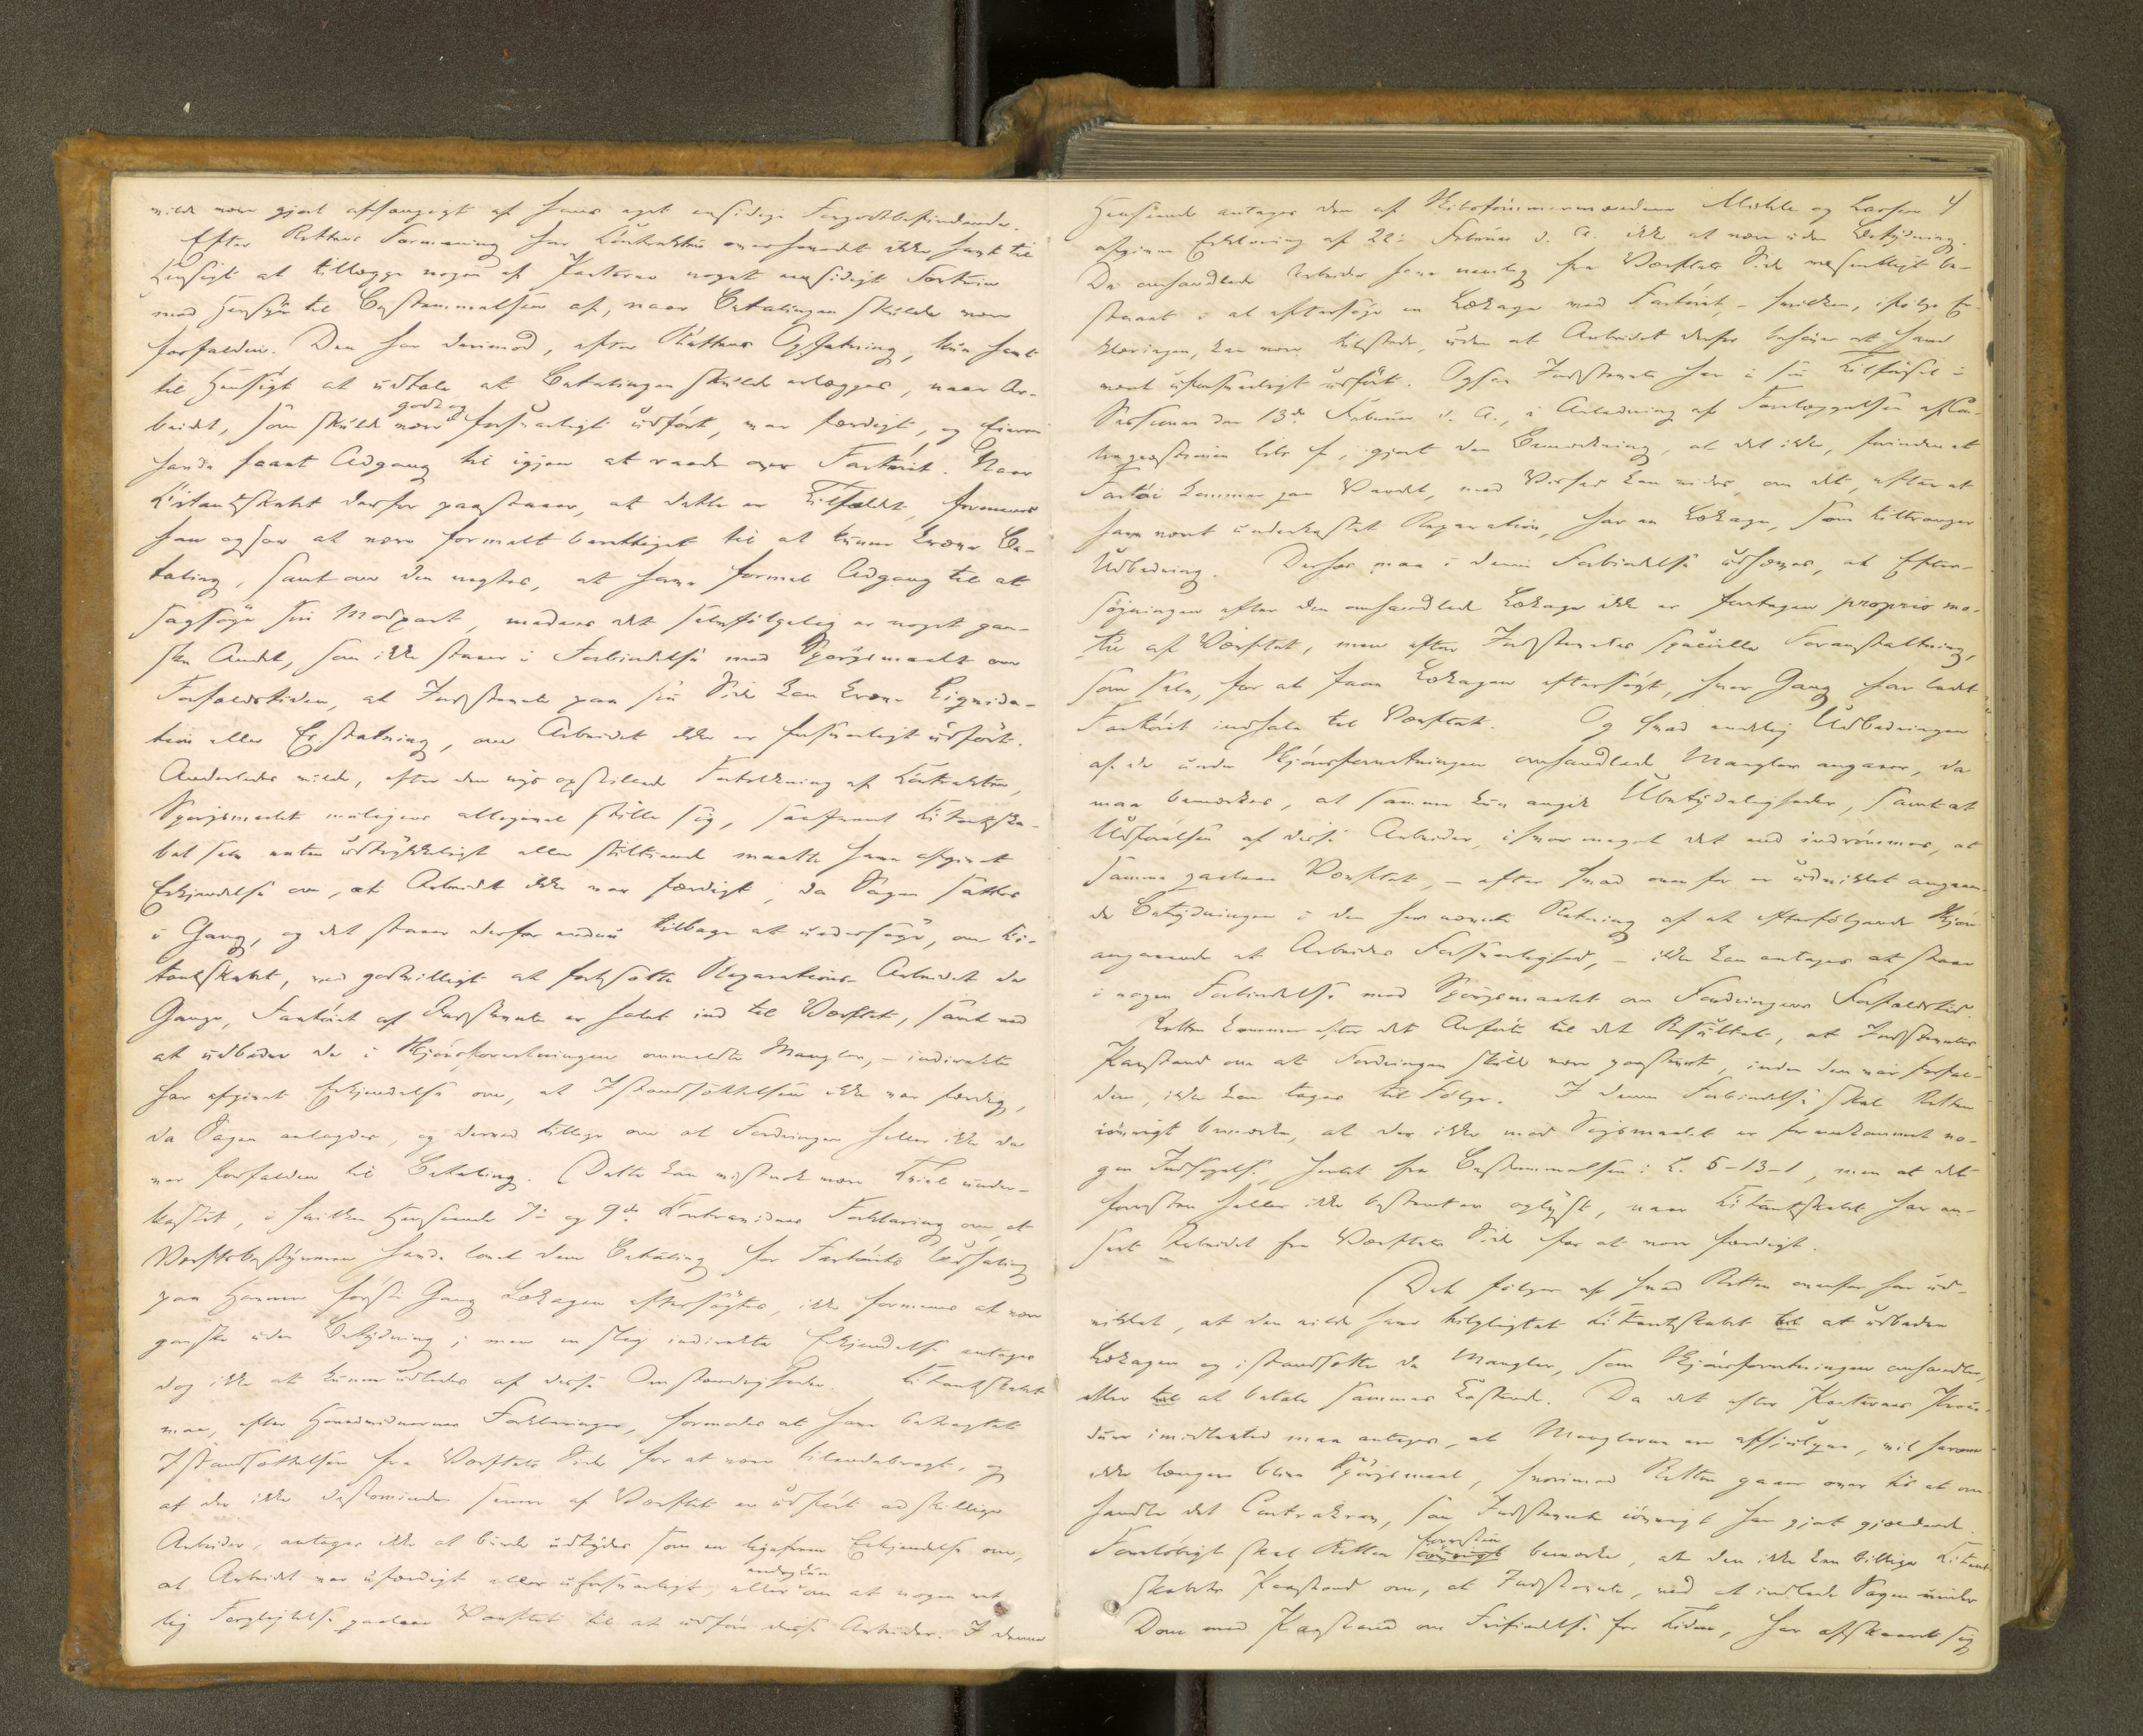 vilde være gjort afhængigt af hans eget ensidige Forgodtbefindende.
Efter Rettens Formening har Contrakten overhovedet ikke havt til
Hensigt at tillægge nogen af Parterne noget ensidigt Fortrin
med Hensyn til Bestemmelsen af, naar Betalingen skulde være
forfalden. Den har derimod, efter Rettens Opfatning, kun havt
til Hensigt at udtale at Betalingen skulde erlægges, naar Ar-
beidet, som skulde være godt og forsvarligt udført, var færdigt, og Eieren
havde faaet Adgang til igjen at raade over Fartøiet. Naar
Citantskabet derfor paastaaer, at dette er Tilfældet, formenes
han ogsaa at være formelt berettiget til at kunne kræve Be-
taling, samt om den negtes, at have formel Adgang til at
sagsøge sin Modpart, medens det selvfølgelig er noget gan-
ske Andet, som ikke staaer i Forbindelse med Spørgsmaalet om
Forfaldstiden, at Indstevnte paa sin Side kan kræve Liqvida-
tion eller Erstatning, om Arbeidet ikke er forsvarligt udført.
Anderledes vilde, efter den nys opstillede Fortolkning af Contrakten,
Spørgsmaalet muligens alligevel stille sig, saafremt Citantska-
bet selv enten udtrykkeligt eller stiltiende maatte have afgivet
Erkjendelse om, at Arbeidet ikke var færdigt, da Sagen sattes
i Gang, og det staaer derfor endnu tilbage at undersøge, om Ci-
tantskabet, ved godvilligt at fortsætte Reparations-Arbeidet de
Gange, Fartøiet af Indstevnte er halet ind til Værftet, samt ved
at udbedre de i Skjønsforretningen ommeldte Mangler, – indirekte
har afgivet Erkjendelse om, at Istandsættelsen ikke var færdig,
da Sagen anlagdes, og derved tillige om at Fordringen heller ikke da
var forfalden til Betaling. Dette kan vistnok være Tvivl under-
kastet, i hvilken Henseende 7de og 9de Contravidnes Forklaring om, at
Værftsbestyreren havde lovet dem Betaling for Fartøiets Udhaling
paa Havnen første Gang Lækagen eftersøgtes, ikke formenes at være
ganske uden Betydning; men en slig indirekte Erkjendelse antages
dog ikke at kunne udledes af disse Omstændigheder. Citantskabet
maa, efter Hovedvidnernes Forklaringer, formodes at have betragtet
Istandsættelsen fra Værftets Side for at være tilendebragt, og
at der ikke destomindre senere af Værftet er udført adskillige
Arbeider, antages ikke at burde udtydes som en ligefrem Erkjendelse om,
at Arbeidet var ufærdigt eller uforsvarligt, eller endogsaa om at nogen ret-
lig Forpligtelse paalaa Værftet til at udføre disse Arbeider. I denne
Henseende antages den af Skibstømmermændene Møhle og Larsen 4
afgivne Erklæring af 22de Februar d. A. ikke at være uden Betydning.
De omhandlede Arbeider have nemlig fra Værftets Side væsentligt be-
staaet i at eftersøge en Lækage ved Fartøiet, – hvilken, ifølge Er-
klæringen, kan være tilstede, uden at Arbeidet derfor behøver at have
været uforsvarligt udført. Ogsaa Indstevnte har i sin Tilførsel i
Sessionen den 13de Februar d. A., i Anledning af Fremlæggelsen af Con-
traqvæstionen litr f, gjort den Bemærkning, at det ikke, forinden et
Fartøi kommer paa Vandet, med Vished kan vides, om det, efter at
have været underkastet Reparation, har en Lækage, som tiltrænger
Udbedring. Derhos maa i denne Forbindelse udhæves, at Efter-
søgningen efter den omhandlede Lækage ikke er foretagen proprio mo-
tu af Værftet, men efter Indstevntes specielle Foranstaltning,
som selv, for at faae Lækagen eftersøgt, hver Gang har ladet
Fartøiet indhale til Værftet. Og hvad endelig Udbedringen
af de under Skjønsforretningen omhandlede Mangler angaaer, da
maa bemærkes, at samme kun angik Ubetydeligheder, samt at
Udførelsen af disse Arbeider, ihvormeget det end indrømmes, at
samme paalaa Værftet, – efter hvad ovenfor er udviklet angaaen-
de Betydningen i den her nævnte Retning af et efterfølgende Skjøn
angaaende et Arbeides Forsvarlighed, – ikke kan antages at staae
i nogen Forbindelse med Spørgsmaalet om Fordringens Forfaldstid.
Retten kommer efter det Anførte til det Resultat, at Indstevntes
Paastand om at Fordringen skulde være paastevnt, inden den var forfal-
den, ikke kan tages til Følge. I denne Forbindelse skal Retten
iøvrigt bemærke, at der ikke mod Søgsmaalet er fremkommet no-
gen Indsigelse, hentet fra Bestemmelsen i L. 5-13-1, men at det
forresten heller ikke bestemt er oplyst, naar Citantskabet har an-
seet Arbeidet fra Værftets Side for at være færdigt.
Det følger af hvad Retten ovenfor har ud-
viklet, at den vilde have tilpligtet Citantskabet til at udbedre
Lækagen og istandsætte de Mangler, som Skjønsforretningen omhandler,
eller til at betale sammes Kostende. Da det efter Parternes Proce-
durer imidlertid maa antages, at Manglerne ere afhjulpne, vil herom
ikke længere blive Spørgsmaal, hvorimod Retten gaaer over til at om-
handle det Contrakrav, som Indstevnte iøvrigt har gjort gjældende.
Foreløbigt skal Retten forresten bemærke, at den ikke kan billige Citant-
skabets Paastand om, at Indstevnte, ved at indlade Sagen under
Dom med Paastand om Frifindelse for Tiden, har afskaaret sig